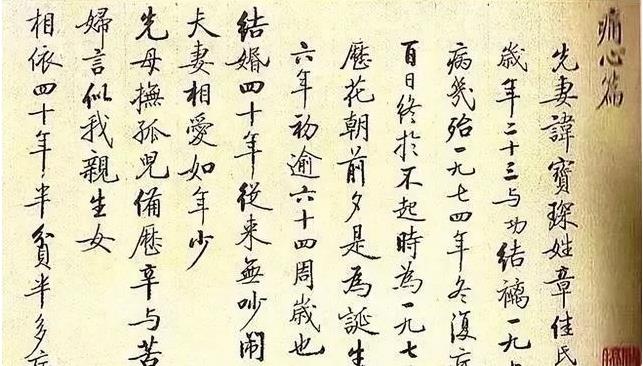 痛心篇
先妻諱寶琛姓章佳氏
歲年二十三与功結褵一九七
病幾殆一九七四年冬復病
百日終於不起時為一九七
歷花朝前夕是為誕生
六年初逾六十四周歲也
結婚四十年從來無吵鬧
夫妻相愛如年少
先母撫孤兒備歷辛与苦
婦言似我親生女
相依四十年半貧半多病